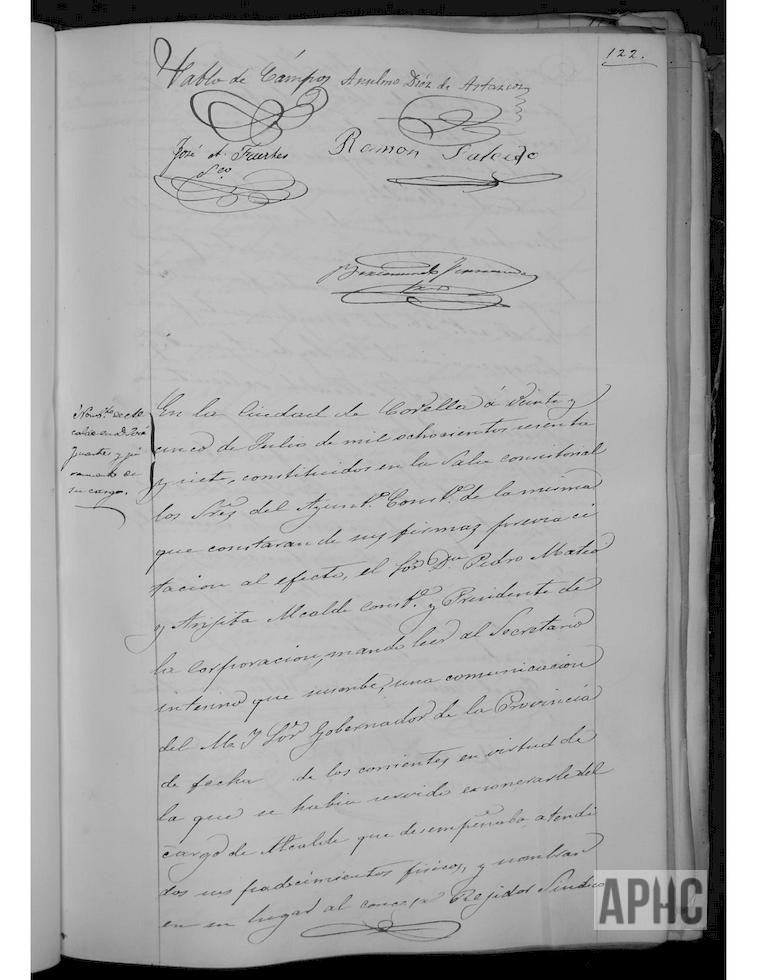 122.
Pablo de Campos Anselmo Dióz de Artazcoz
José A. Fuertes
Sco
Ramon Salcedo
Nombto de Al
calde en D. José
Fuertes y ju
ramento de
su cargo.
En la Ciudad de Corella á veinte y
cinco de Julio de mil ochocientos sesenta
y siete, constituidos en la Sala consistorial
los Sres del Ayunto. Constl. de la misma
que constaran de sus firmas, previa ci
tacion al efecto, el Sor. Dn. Pedro Mateo
y Alcalde constl. y Presidente de
la corporacion, mandó leer al Secretario
interino que suscribe, una comunicacion
del M. Y Sor. Gobernador de la Provincia
de fecha de los corrientes en virtud de
la que se habia servido exonerarle del
cargo de Alcalde que desempeñaba, atendi
dos sus padecimientos fisicos, y nombrar
en su lugar al concejal Rejidor Sindico
APHC